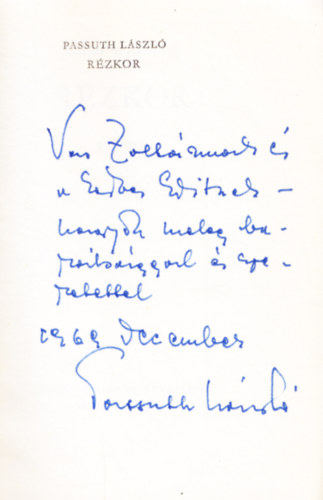 PASSUTH LÁSZLÓ
RÉZKOR
Vas Zoltánnak és
a kedves Editnek –
meleg ba-
rátsággal és sze-
retettel
1969 december
Passuth László